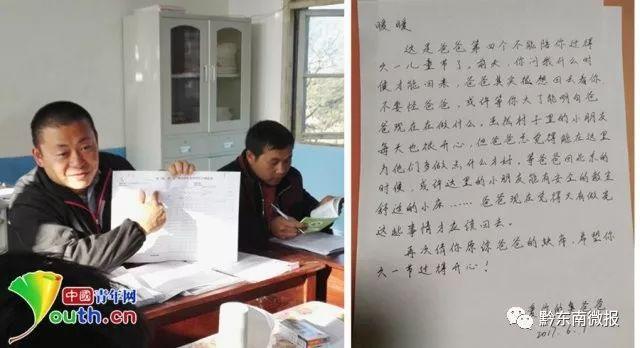 暖暖
这是爸爸第四个不能陪你过得
六一儿童节了。前天,你问我什么时
候才能回来,爸爸其实很想回去看你
不要怪爸爸,或许等你大了能明白爸
爸现在在做什么。虽然村子里的小朋友
每天也很开心,但爸爸总觉得能在这里
为他们多做点什么才好,等爸爸回北京的
时候,或许这里的小朋友能有安全的教室
舒适的小床……爸爸现在觉得只有做完
这些事情才应该回去。
再次请你原谅爸爸的缺席,希望你
六一节过得开心!
爸爸
2017.6.1
中國青年网
Youth.cn
黔东南微报